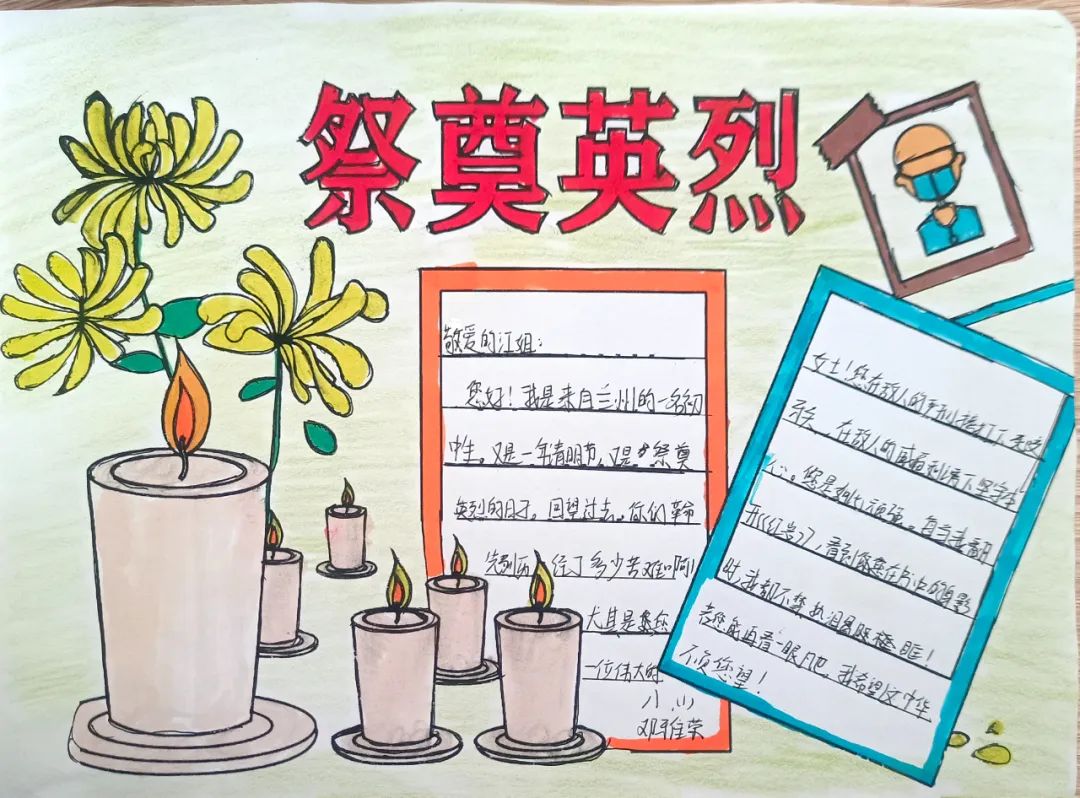 祭奠英烈
敬爱的江姐：
您好！我是来自兰州的一名初
中生。又是一年清明节，又是祭奠
英烈的日子，回望过去，你们革命
先烈历经了多少苦难啊
尤其是您
一位伟大的
女士！您在敌人的
在敌人的威逼利诱下坚守本
心。您是如此顽强。每当我翻
开《红岩》，看到您在书中的身影
时，我都不禁热泪
您能再看一眼吧，我希望
不负您望！